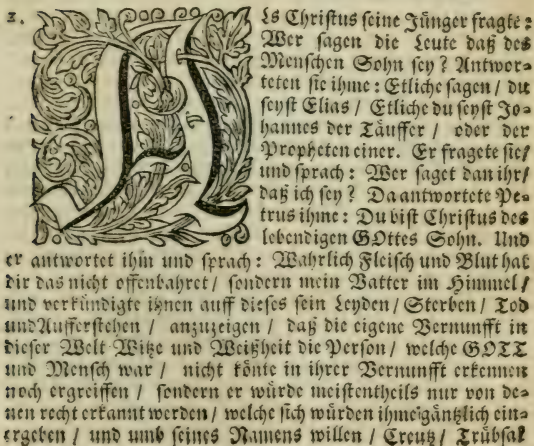 2.
ALs Christus seine Jünger fragte:
Wer sagen die Leute daß des
Menschen Sohn sey? Antwor-
teten sie ihme: Etliche sagen / du
seyst Elias / Etliche du seyst Jo-
hannes der Täuffer / oder der
Propheten einer. Er fragete sie/
und sprach: Wer saget dan ihr/
daß ich sey? Da antwortete Pe-
trus ihme: Du bist Christus des
lebendigen GOttes Sohn. Und
er antwortet ihm und sprach: Wahrlich Fleisch und Blut hat
dir das nicht offenbahret / sondern mein Vatter im Himmel /
und verkündigte ihnen auff dieses sein Leyden / Sterben / Tod
und Aufferstehen / anzuzeigen / daß die eigene Vernunfft in
dieser Welt Witze und Weißheit die Person / welche GOTT
und Mensch war / nicht könte in ihrer Vernunfft erkennen
noch ergreiffen / sondern er würde meistentheils nur von de-
nen recht erkannt werden / welche sich würden ihme gänzlich ein-
ergeben / und umb seines Namens willen / Creutz / Trübsal